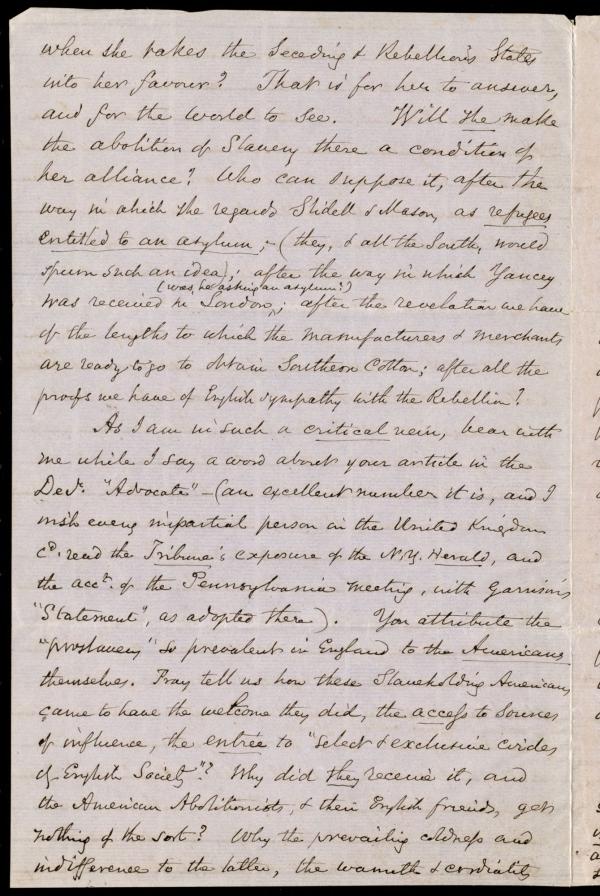 when she takes the Seceding & Rebellious States
into her favour? That is for her to answer,
and for the world to see. Will she make
the abolition of Slavery there a condition of
her alliance? Who can suppose it, after the
way in which she regards Slidell & Mason, as refugees
entitled to an asylum,- (they, & all the South, would
spurn such an idea); after the way in which Yancey
(was he asking an asylum?)
was received in London^; after the revelation we have
of the lengths to which the manufacturers & merchants
are ready to go to obtain Southern Cotton; after all the
proofs we have of English sympathy with the Rebellion?
As I am in such a critical vein, bear with
me while I say a word about your article in the
Decr. "Advocate" - (an excellent number it is, and I
wish every impartial person in the United Kingdom
cd. read the Tribune's exposure of the N.Y. Herald, and
the acct. of the Pennsylvania meeting, with Garrison's
"Statement", as adopted there). You attribute the
"proslavery" so prevalent in England to the Americans
themselves. Pray tell us how these Slaveholding Americans
came to have the welcome they did, the access to sources
of influence, the entrée to "select & exclusive circles
of English Society"? Why did they receive it, and
the American Abolitionists, & their English friends, get
nothing of the sort? Why the prevailing coldness and
indifference to the latter, the warmth & cordiality